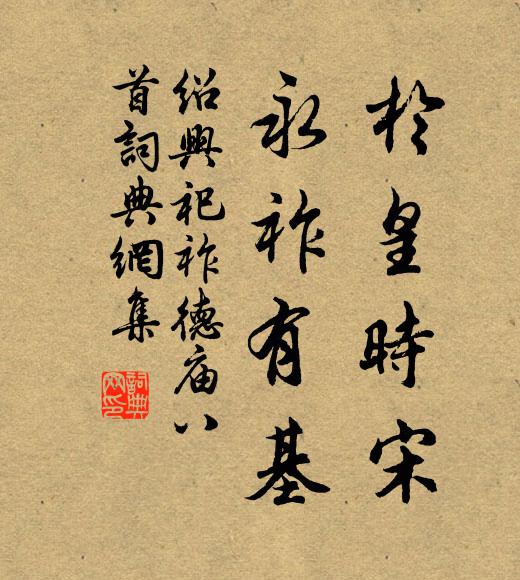 於皇時宋
永祚有基
紹興祀祚德庙八
首詞典網集
詞典
网印